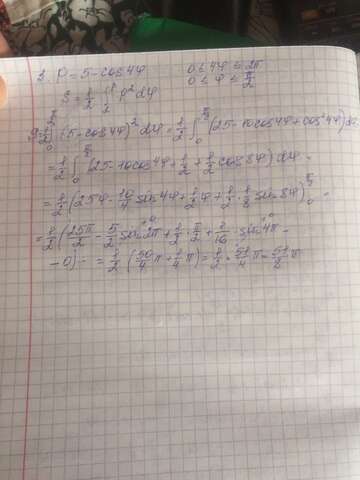 1. ρ = 5 - cos4φ   0 ≤ 4φ ≤ 2π
0 ≤ φ ≤ π/2
S = 1/2 ∫ ρ² dφ
S = 1/2 ∫₀^{π/2} (5 - cos4φ)² dφ = 1/2 ∫₀^{π/2} (25 - 10cos4φ + cos²4φ) dφ
= 1/2 ∫₀^{π/2} (25 - 10cos4φ + 1/2 + 1/2 cos8φ) dφ =
= 1/2 (25φ - 10/4 sin4φ + 1/2 φ + 1/2 · 1/8 sin8φ)₀^{π/2} =
= 1/2 (25π/2 - 5/2 sin2π + 1/2 · π/2 + 1/16 · sin4π -
- 0) = = 1/2 (50/4 π + 1/4 π) = 1/2 · 51/4 π = 51/8 π